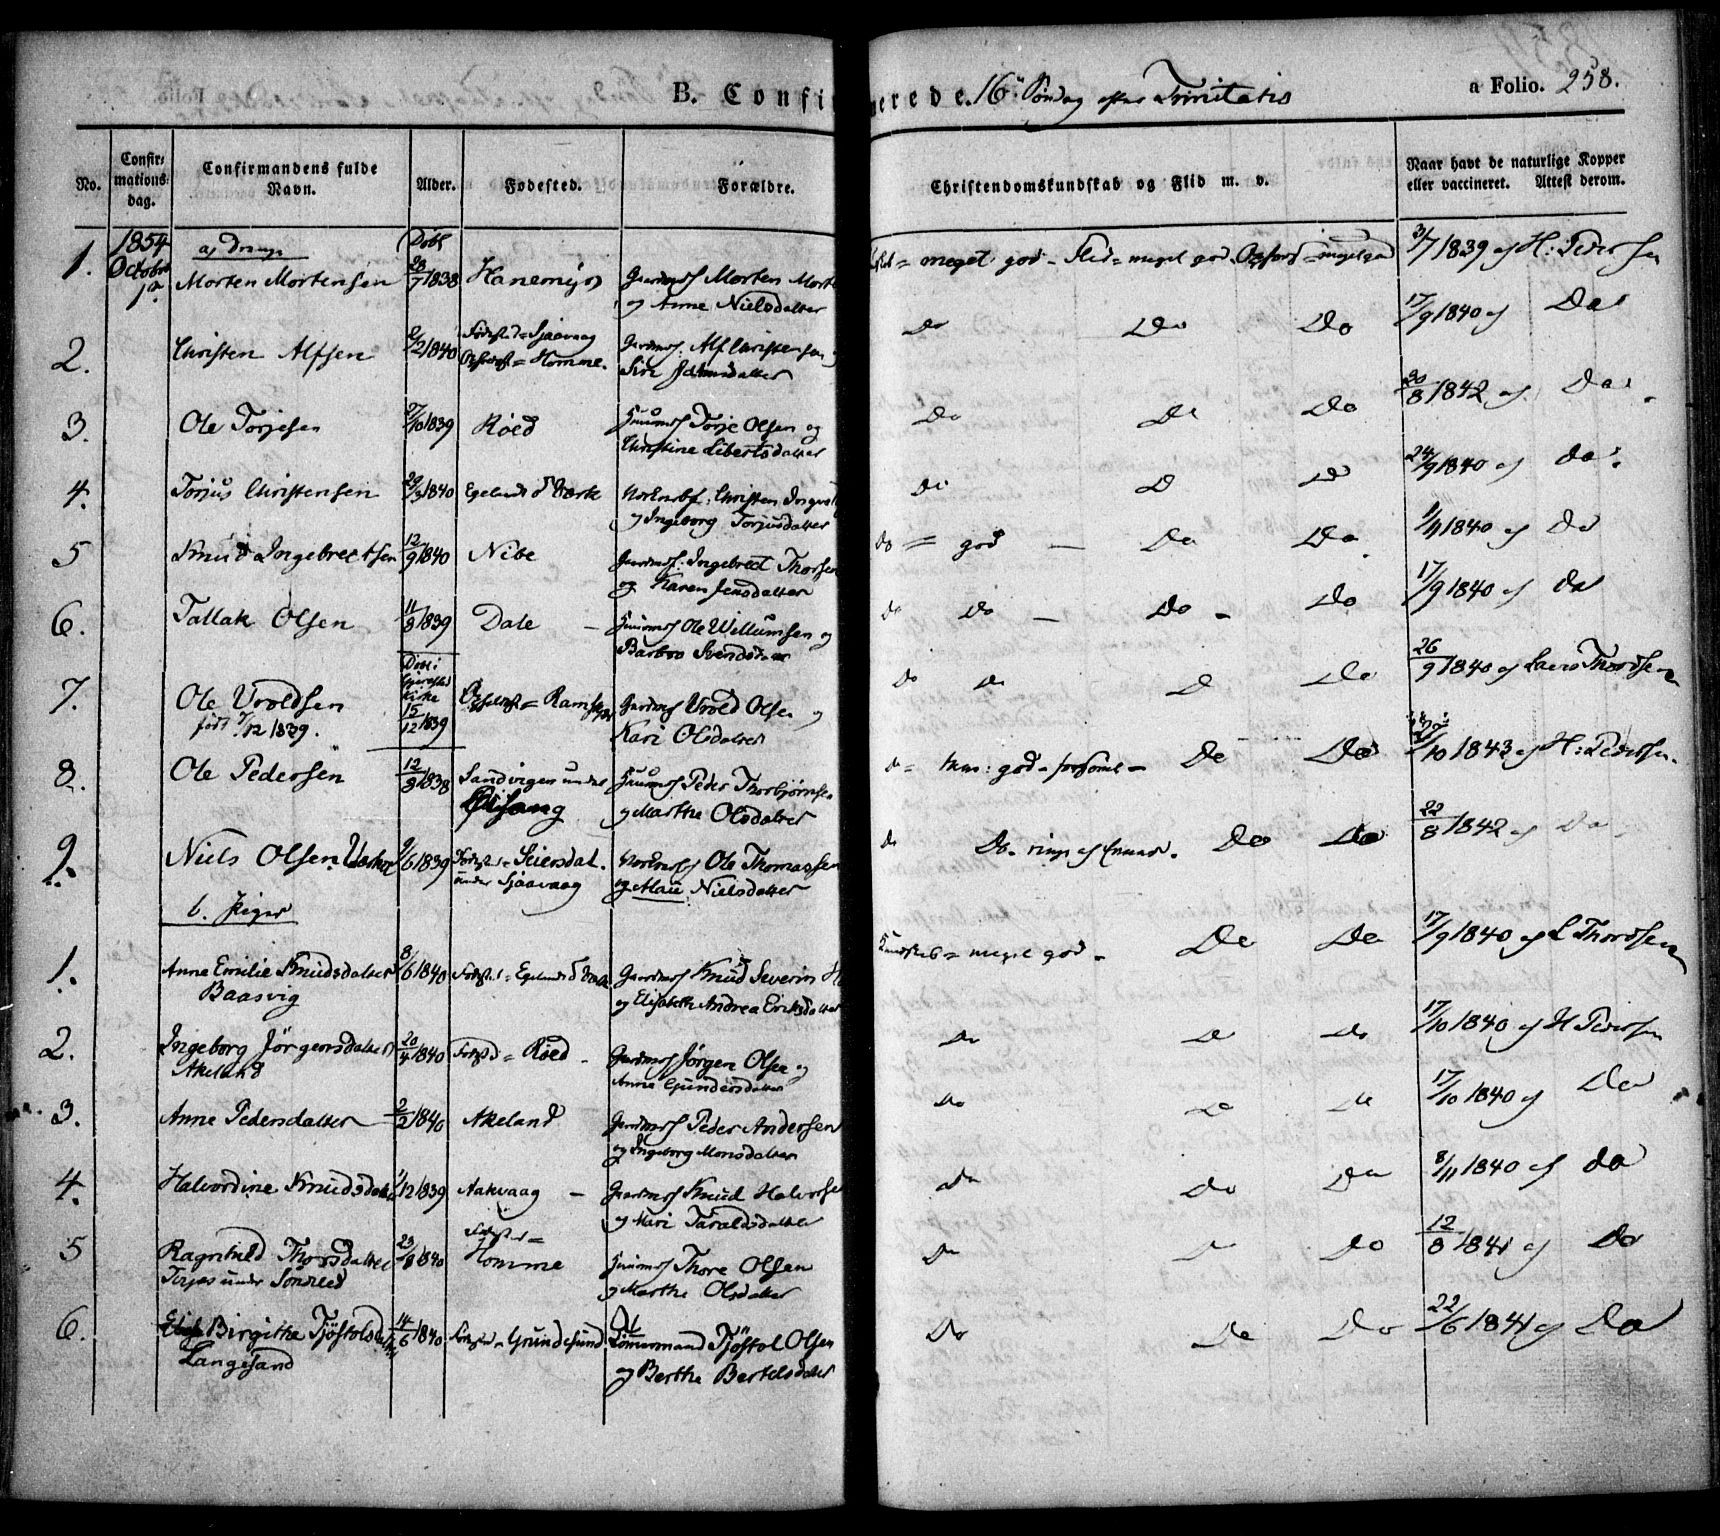 B. Confirmerede. 16. Søndag efter Trinitatis
a Folio. 258.
No.
Confirmations dag.
Confirmandens fulde Navn.
Alder.
Fødested.
Forældre.
Christendomskundskab og Flid m. v.
Naar havt de naturlige Kopper eller vaccineret. Attest derom.
1854
a, Drenge
Døbt
1. October 1. Morten Mortensen 28/7 1838 Hanemyr Gaardmd Morten Mort
og Anne Nielsdatter
meget god - Flid = meget god 3/7 1839 af H: Pedersen
2. Christen Alfsen 2/2 1840 Sjaavaag Homme. Gaardmd: Alf Christensen
Siri
Do Do Do 17/9 1840 af Do
3. Ole Torjesen 27/10 1839 Røed Huusmd Torje Olsen og
Christine Libertsdatter
Do Do Do 20/8 1842 af Do
4. Torjus Christensen 29/3 1840 Egelands Værk Christen
og Ingeborg Torjusdatter
Do Do Do 24/9 1840 af Do
5 Knud Ingebrectsen 12/9 1840 Nibe Gaardmd: Ingebrect Thorsen
og Karen Jensdatter
Do = god - Do Do 1/11 1840 af Do
6. Tallak Olsen 11/8 1839 Dale - Huusmd Ole Willumsen og
Barbro Svendsdatter
Do Do - Do - Do 17/9 1840 af Do
Døbt i
Kirke
7. Ole Vroldsen 15/12 1839 Gaardmd Vrold Olsen og
født 7/12 1839.
Kari Olsdatter
Do Do Do Do 26/9 1840 af Lars Thordsen
8. Ole Pedersen 12/8 1838 Sandvigen under Huusmd Peder Thorbjørnsen
og Marthe Olsdatter
god Do Do /10 1843 af H: Pedersen.
9. Niels Olsen 9/6 1839 Seiersdal. Ole Thomassen
under Sjaavaag og Maie Nielsdatter
Do Do Do Do 22/8 1842 af Do
b. Piger
1. Anne Emilie Knudsdatter 8/6 1840 Egelands Værk Gaardmd Knud Severin
Baasvig og Elisabeth Andrea Eriksdatter
Kundskab = meget god - Do Do 17/9 1840 af L Thordsen
2. Ingeborg Jörgensdatter 20/4 1840 Røed - Gaardmd Jørgen Olsen og
Akeland Anne Gundersdatter
Do Do Do 17/10 1840 af H Pedersen
3. Anne Pedersdatter 2/2 1840 Akeland Gaardmd Peder Andersen
og Ingeborg Monsdatter
Do Do Do 17/10 1840 af Do
4. Halvordine Knudsdatter 1/12 1839 Aakvaag - Gaardmd Knud Halvorsen
og Mari Taraldsdatter
Do Do Do 8/11 1840 af Do
5 Ragnhild Thorsdatter 23/8 1840 Homme Huusmd Thore Olsen
under Søndeled og Marthe Olsdatter
Do Do Do 12/8 1841 af Do
6. Birgithe Tjöstolsdatter 14/6 1840 Grundesund Tjöstol Olsen
Langesand og Berthe Bertelsdatter
Do Do Do 22/6 1841 af Do